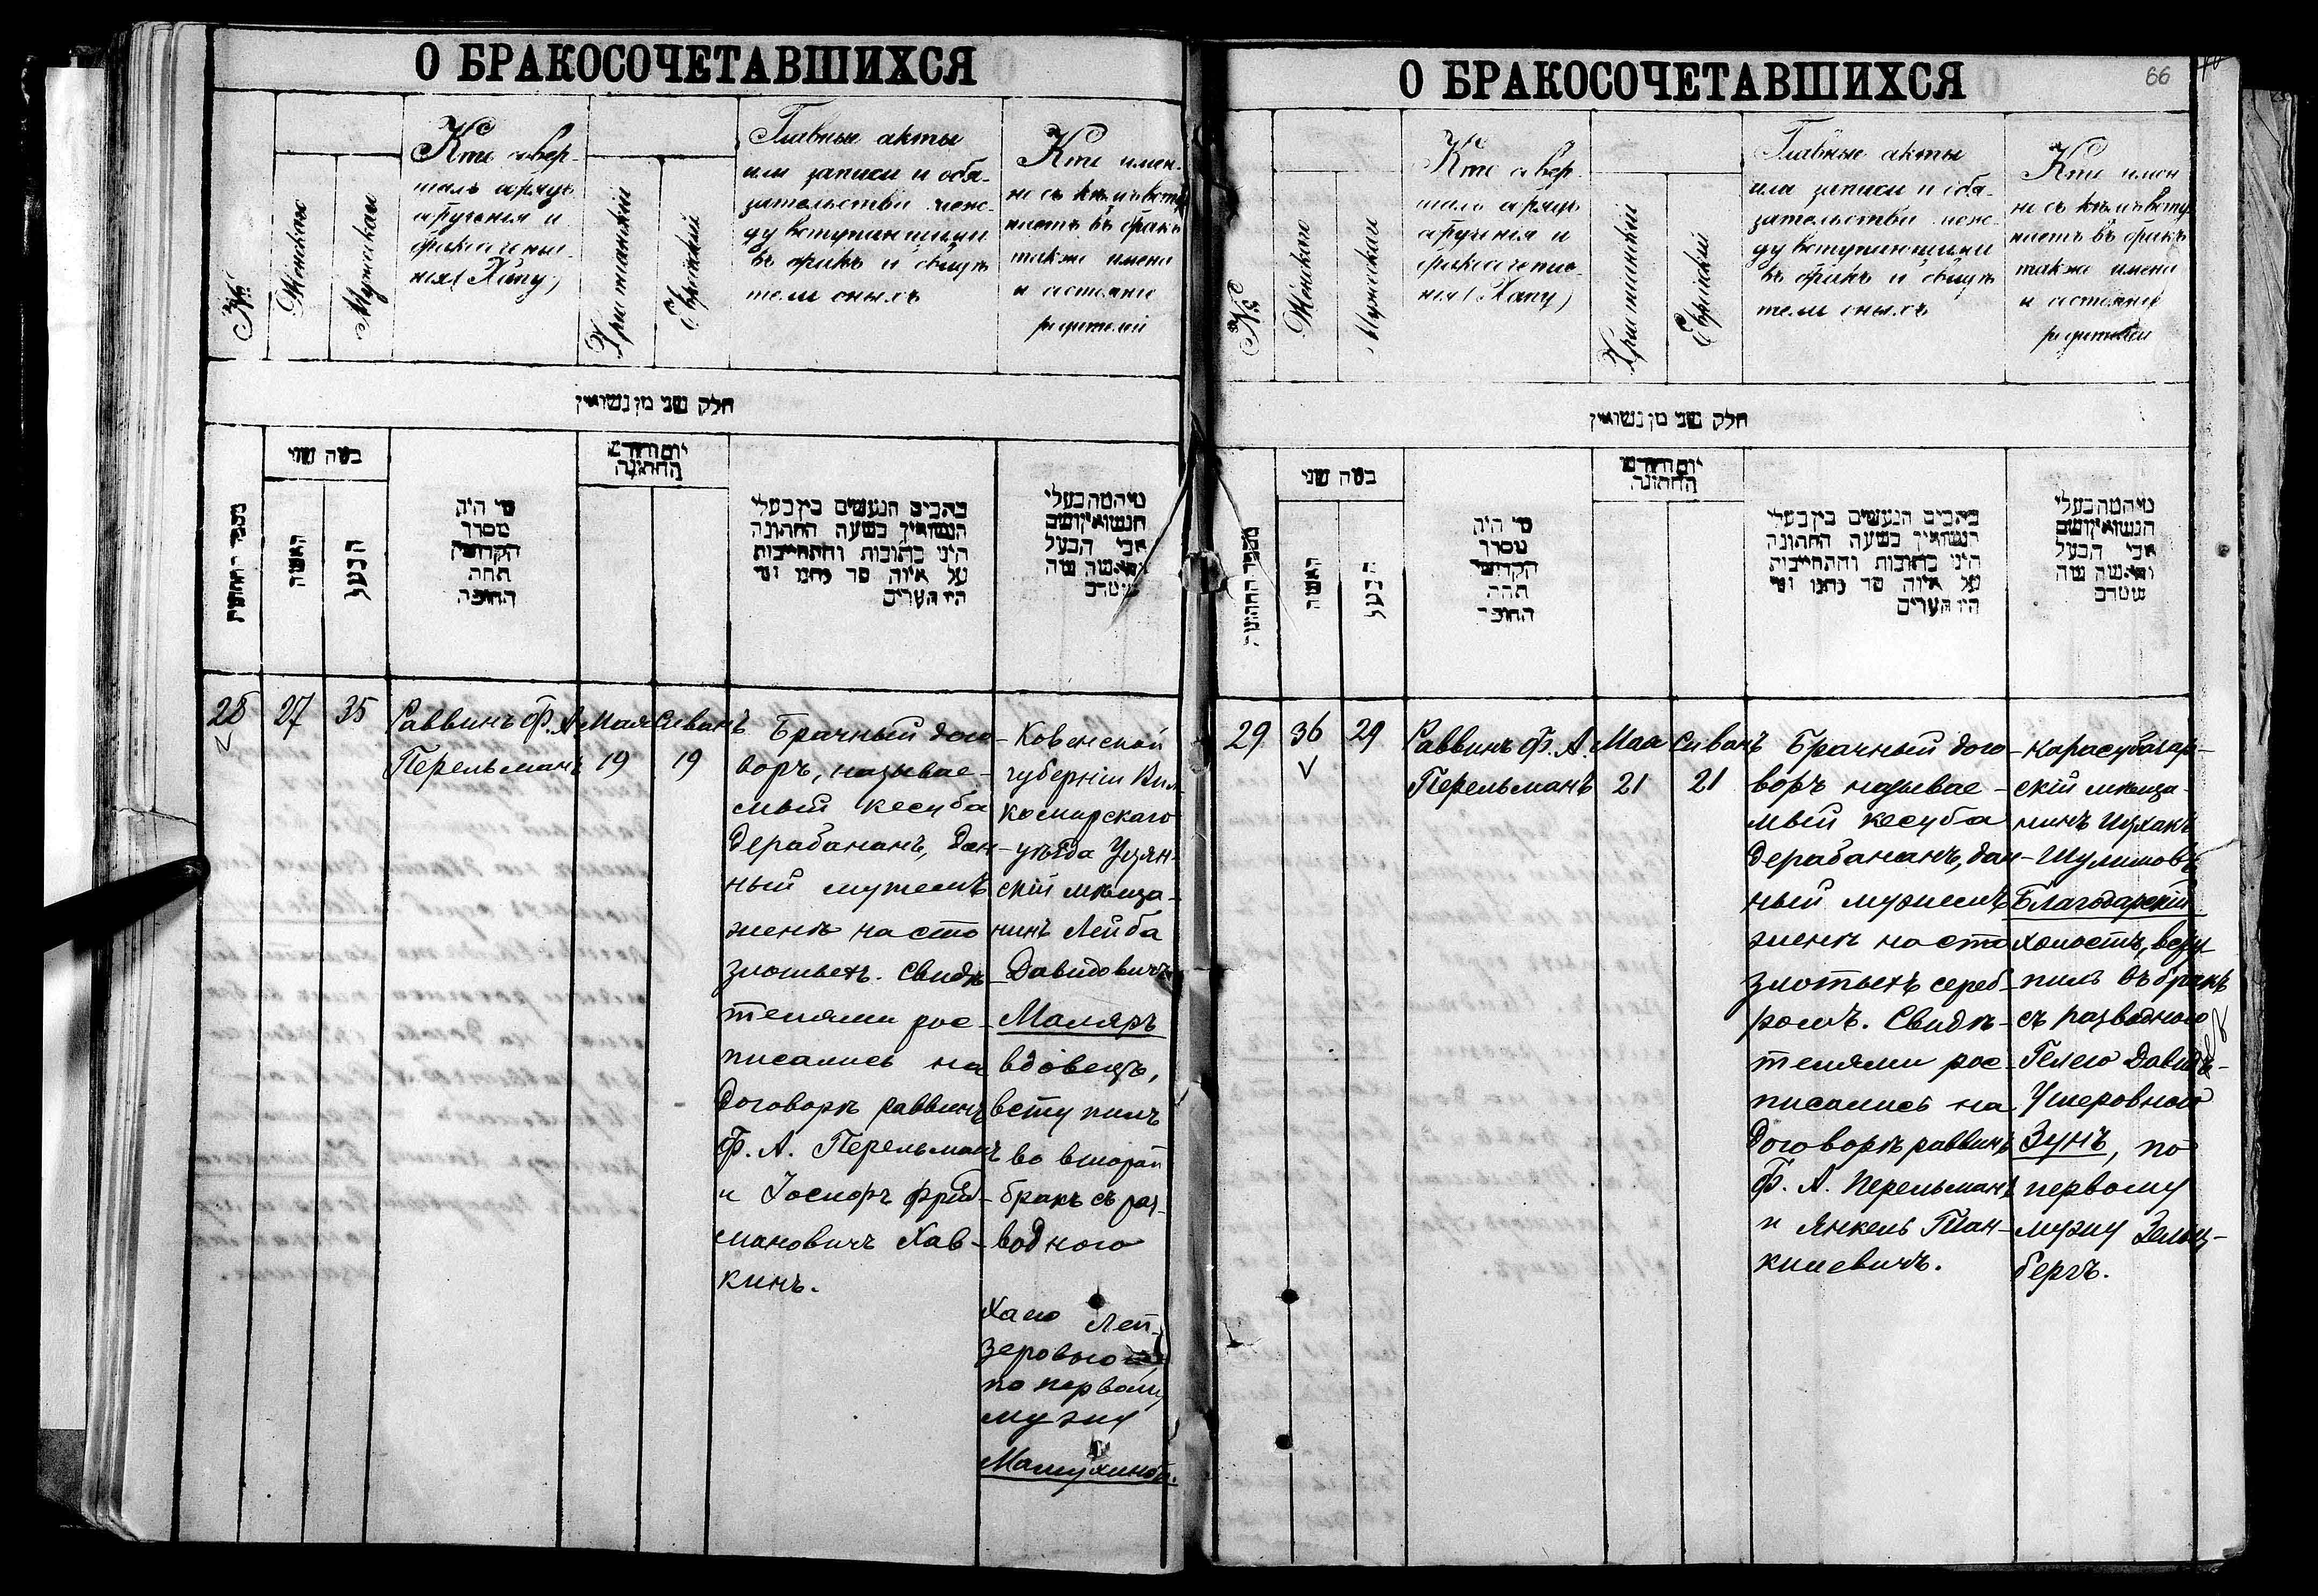 О БРАКОСОЧЕТАВШИХСЯ
№
Женская
Мужская
Кто совер-
шалъ обрядъ
обрученія и
бракосочета-
нія (Хипу)
Христіанскій
Еврейскій
Главные акты
или записи и обя-
зательства меж-
ду вступившими
въ бракъ и свидѣ
тели оныхъ
Кто имен-
но съ кѣмъ всту
паетъ въ бракъ
также имена
и состояніе
родителей
חלק שני מן נשואין
מספר החתונות
כמה שני
האשה
הבעל
מי היה
מסדר
הקדושין
תחת
החופה
יום וחדש
החתונה
כתבים הנעשים בין בעלי
הנשואין בשעה החתונה
היינו כתובות והתחייבות
על איזה סך נתנו ומי
היו העדים
מי המה בעלי
הנשואין ושם
אבי הבעל
והאשה
28
27
35
Раввинъ Ф. А.
Перельманъ
Мая
19
Сиванъ
19
Брачный дого-
воръ, называе-
мый кесуба
дерабананъ, дан-
ный мужемъ
женѣ на сто
злотыхъ. Свидѣ-
телями рос-
писались на
договорѣ раввинъ
Ф. А. Перельманъ
и Іосифъ Фрид-
мановичъ Хав-
кинъ.
Ковенской
губерніи Вил-
комирскаго
уѣзда Уцян-
скій мѣща-
нинъ Лейба
Давидовичъ
Маляръ
вдовецъ,
вступилъ
во второй
бракъ съ раз-
водного
Хаею Лей-
зеровною
по первому
мужу
О БРАКОСОЧЕТАВШИХСЯ
66
№
Женская
Мужская
Кто совер-
шалъ обрядъ
обрученія и
бракосочета-
нія (Хапу)
Христіанскій
Еврейскій
Главные акты
или записи и обя-
зательства меж-
ду вступившими
въ бракъ и свидѣ
тели оныхъ
Кто имен
но съ кѣмъ всту
паетъ въ бракъ
также имена
и состояніе
родителей
חלק שני מן נשואין
מספר החתונות
כמה שני
האשה
הבעל
מי היה
מסדר
הקדושין
תחת
החופה
יום וחדש
החתונה
כתבים הנעשים בין בעלי
הנשואין בשעה החתונה
היינו כתובות והתחייבות
על איזה סך נתנו ומי
היו העדים
מי המה בעלי
הנשואין ושם
אבי הבעל
והאשה
29
36
29
Раввинъ Ф. А.
Перельманъ
Мая
21
Сиванъ
21
Брачный дого-
воръ называе-
мый кесуба
дерабананъ, дан-
ный мужемъ
женѣ на сто
злотыхъ сереб-
ромъ. Свидѣ-
телями рос-
писались на
договорѣ раввинъ
Ф. А. Перельманъ
и Янкель
Карасубазар-
скій мѣща-
нинъ Ицхакъ
Шулимовъ
Благодарскій
холостъ, всту
пилъ въ бракъ
съ разводного
Гелею Давидъ-
Ушеровной
Зунъ, по
первому
мужу
бергъ.